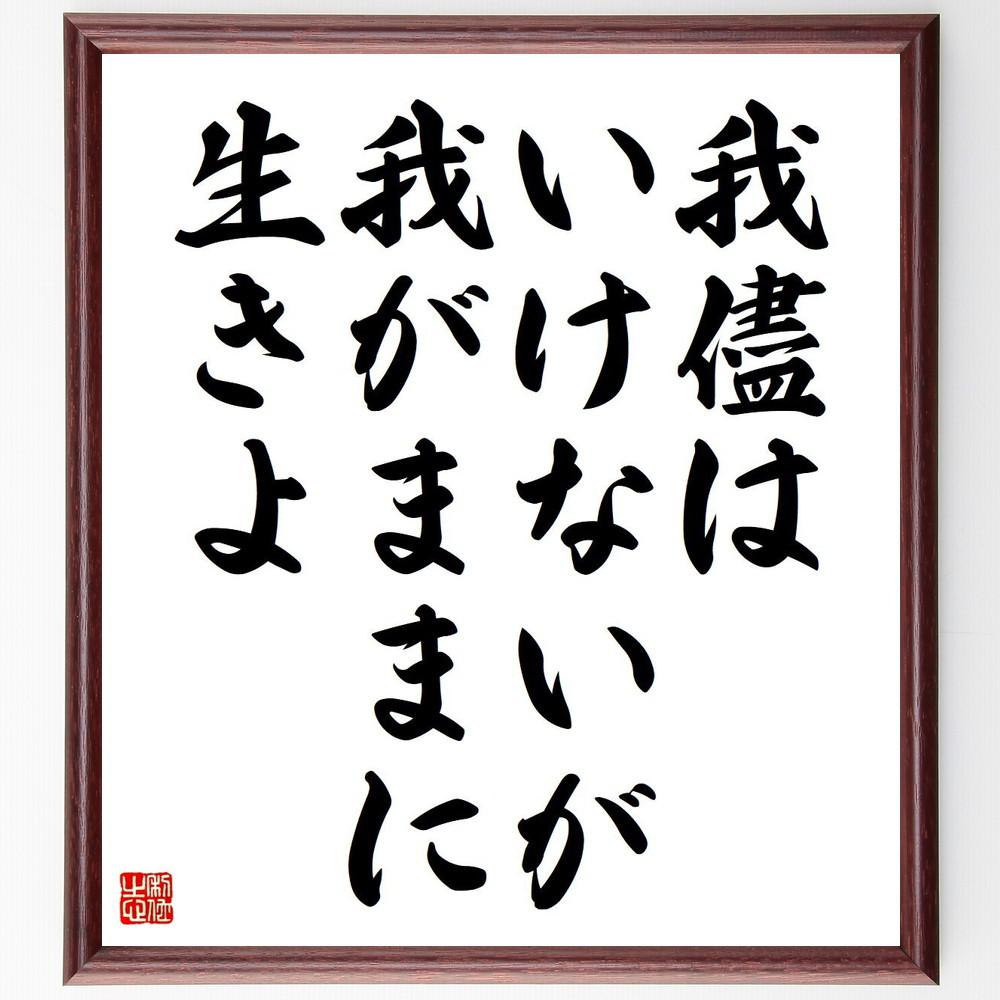 我儘は
いけないが
我がままに
生きよ